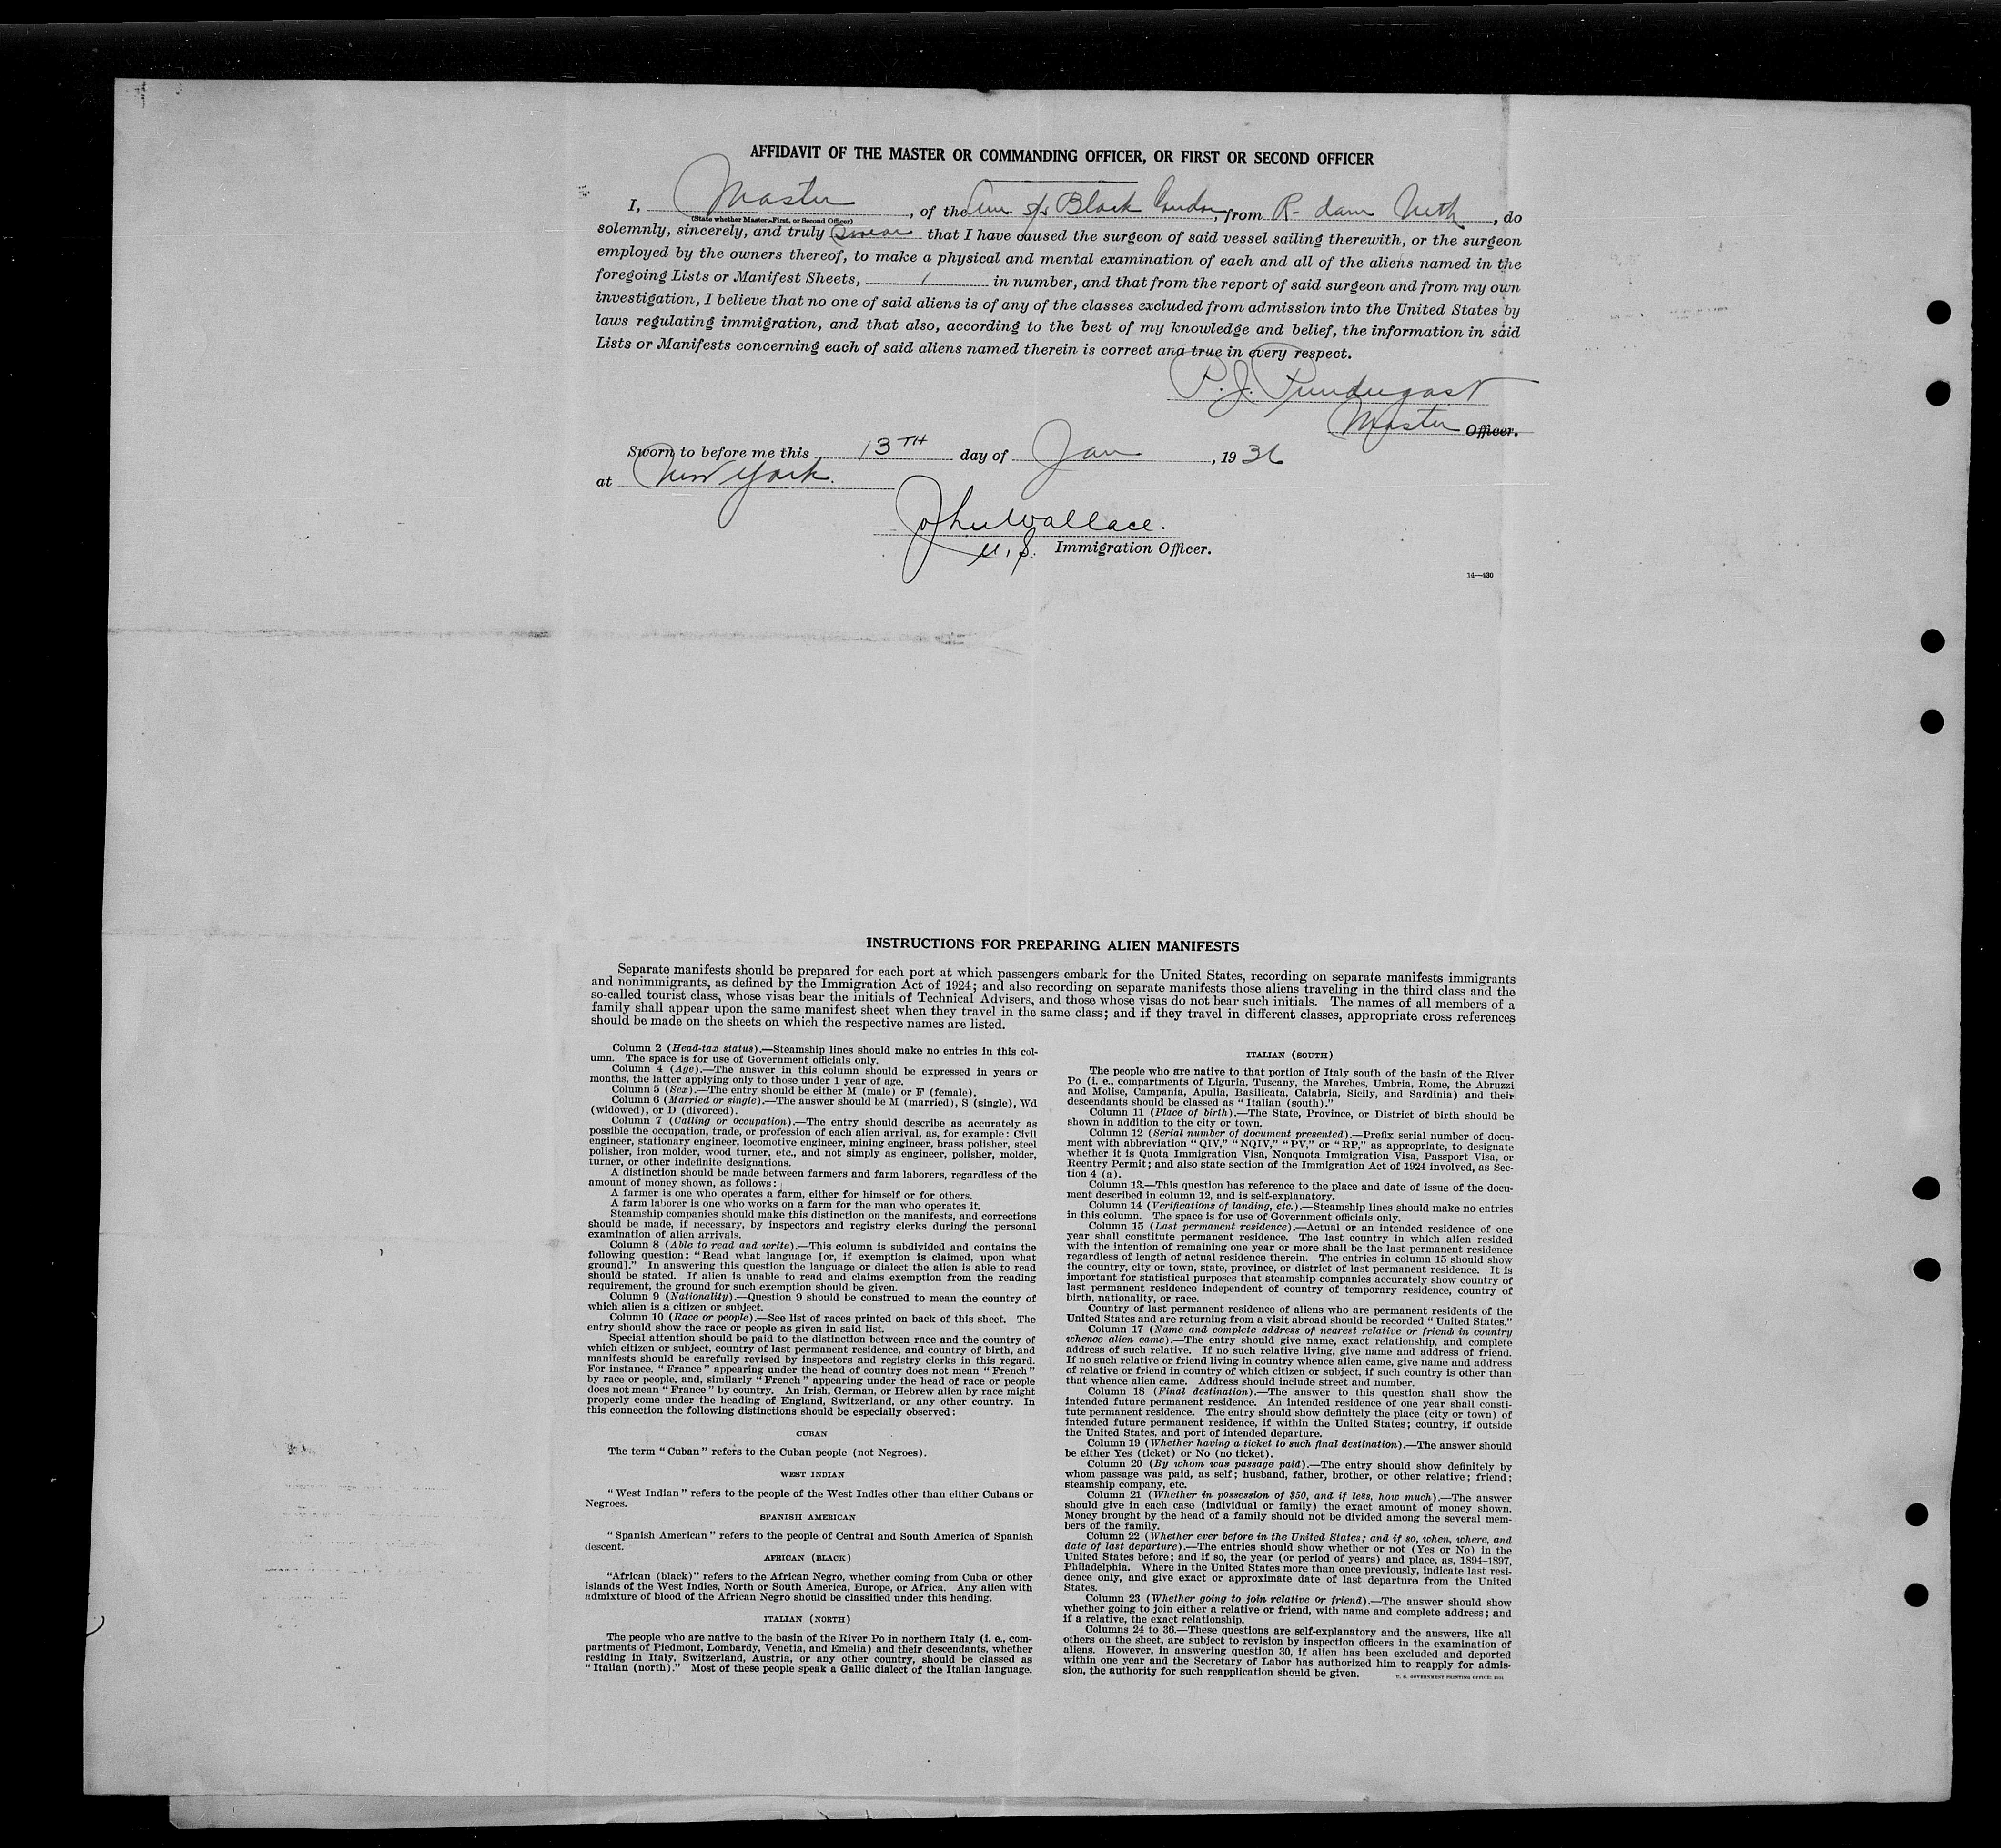 AFFIDAVIT OF THE MASTER OR COMMANDING OFFICER, OR FIRST OR SECOND OFFICER
I, Master, of the Am s/s Black Condor, from R-dam Neth, do
(State whether Master, First, or Second Officer)
solemnly, sincerely, and truly swear that I have caused the surgeon of said vessel sailing therewith, or the surgeon
employed by the owners thereof, to make a physical and mental examination of each and all of the aliens named in the
foregoing Lists or Manifest Sheets, 1 in number, and that from the report of said surgeon and from my own
investigation, I believe that no one of said aliens is of any of the classes excluded from admission into the United States by
laws regulating immigration, and that also, according to the best of my knowledge and belief, the information in said
Lists or Manifests concerning each of said aliens named therein is correct and true in every respect.
P. J.
Master Officer.
Sworn to before me this 13TH day of Jan, 1936
at New York.
John Wallace.
U. S. Immigration Officer.
14—430
INSTRUCTIONS FOR PREPARING ALIEN MANIFESTS
Separate manifests should be prepared for each port at which passengers embark for the United States, recording on separate manifests immigrants
and nonimmigrants, as defined by the Immigration Act of 1924; and also recording on separate manifests those aliens traveling in the third class and the
so-called tourist class, whose visas bear the initials of Technical Advisers, and those whose visas do not bear such initials. The names of all members of a
family shall appear upon the same manifest sheet when they travel in the same class; and if they travel in different classes, appropriate cross references
should be made on the sheets on which the respective names are listed.
Column 2 (Head-tax status).—Steamship lines should make no entries in this col-
umn. The space is for use of Government officials only.
Column 4 (Age).—The answer in this column should be expressed in years or
months, the latter applying only to those under 1 year of age.
Column 5 (Sex).—The entry should be either M (male) or F (female).
Column 6 (Married or single).—The answer should be M (married), S (single), Wd
(widowed), or D (divorced).
Column 7 (Calling or occupation).—The entry should describe as accurately as
possible the occupation, trade, or profession of each alien arrival, as, for example: Civil
engineer, stationary engineer, locomotive engineer, mining engineer, brass polisher, steel
polisher, iron molder, wood turner, etc., and not simply as engineer, polisher, molder,
turner, or other indefinite designations.
A distinction should be made between farmers and farm laborers, regardless of the
amount of money shown, as follows:
A farmer is one who operates a farm, either for himself or for others.
A farm laborer is one who works on a farm for the man who operates it.
Steamship companies should make this distinction on the manifests, and corrections
should be made, if necessary, by inspectors and registry clerks during the personal
examination of alien arrivals.
Column 8 (Able to read and write).—This column is subdivided and contains the
following question: "Read what language [or, if exemption is claimed, upon what
ground]." In answering this question the language or dialect the alien is able to read
should be stated. If alien is unable to read and claims exemption from the reading
requirement, the ground for such exemption should be given.
Column 9 (Nationality).—Question 9 should be construed to mean the country of
which alien is a citizen or subject.
Column 10 (Race or people).—See list of races printed on back of this sheet. The
entry should show the race or people as given in said list.
Special attention should be paid to the distinction between race and the country of
which citizen or subject, country of last permanent residence, and country of birth, and
manifests should be carefully revised by inspectors and registry clerks in this regard.
For instance, "France" appearing under the head of country does not mean "French"
by race or people, and, similarly "French" appearing under the head of race or people
does not mean "France" by country. An Irish, German, or Hebrew alien by race might
properly come under the heading of England, Switzerland, or any other country. In
this connection the following distinctions should be especially observed:
CUBAN
The term "Cuban" refers to the Cuban people (not Negroes).
WEST INDIAN
"West Indian" refers to the people of the West Indies other than either Cubans or
Negroes.
SPANISH AMERICAN
"Spanish American" refers to the people of Central and South America of Spanish
descent.
AFRICAN (BLACK)
"African (black)" refers to the African Negro, whether coming from Cuba or other
islands of the West Indies, North or South America, Europe, or Africa. Any alien with
admixture of blood of the African Negro should be classified under this heading.
ITALIAN (NORTH)
The people who are native to the basin of the River Po in northern Italy (i. e., com-
partments of Piedmont, Lombardy, Venetia, and Emelia) and their descendants, whether
residing in Italy, Switzerland, Austria, or any other country, should be classed as
"Italian (north)." Most of these people speak a Gallic dialect of the Italian language.
ITALIAN (SOUTH)
The people who are native to that portion of Italy south of the basin of the River
Po (i. e., compartments of Liguria, Tuscany, the Marches, Umbria, Rome, the Abruzzi
and Molise, Campania, Apulia, Basilicata, Calabria, Sicily, and Sardinia) and their
descendants should be classed as "Italian (south)."
Column 11 (Place of birth).—The State, Province, or District of birth should be
shown in addition to the city or town.
Column 12 (Serial number of document presented).—Prefix serial number of docu-
ment with abbreviation "QIV," "NQIV," "PV," or "RP," as appropriate, to designate
whether it is Quota Immigration Visa, Nonquota Immigration Visa, Passport Visa, or
Reentry Permit; and also state section of the Immigration Act of 1924 involved, as Sec-
tion 4 (a).
Column 13.—This question has reference to the place and date of issue of the docu-
ment described in column 12, and is self-explanatory.
Column 14 (Verifications of landing, etc.).—Steamship lines should make no entries
in this column. The space is for use of Government officials only.
Column 15 (Last permanent residence).—Actual or an intended residence of one
year shall constitute permanent residence. The last country in which alien resided
with the intention of remaining one year or more shall be the last permanent residence
regardless of length of actual residence therein. The entries in column 15 should show
the country, city or town, state, province, or district of last permanent residence. It is
important for statistical purposes that steamship companies accurately show country of
last permanent residence independent of country of temporary residence, country of
birth, nationality, or race.
Country of last permanent residence of aliens who are permanent residents of the
United States and are returning from a visit abroad should be recorded "United States."
Column 17 (Name and complete address of nearest relative or friend in country
whence alien came).—The entry should give name, exact relationship, and complete
address of such relative. If no such relative living, give name and address of friend.
If no such relative or friend living in country whence alien came, give name and address
of relative or friend in country of which citizen or subject, if such country is other than
that whence alien came. Address should include street and number.
Column 18 (Final destination).—The answer to this question shall show the
intended future permanent residence. An intended residence of one year shall consti-
tute permanent residence. The entry should show definitely the place (city or town) of
intended future permanent residence, if within the United States; country, if outside
the United States, and port of intended departure.
Column 19 (Whether having a ticket to such final destination).—The answer should
be either Yes (ticket) or No (no ticket).
Column 20 (By whom was passage paid).—The entry should show definitely by
whom passage was paid, as self; husband, father, brother, or other relative; friend;
steamship company, etc.
Column 21 (Whether in possession of $50, and if less, how much).—The answer
should give in each case (individual or family) the exact amount of money shown.
Money brought by the head of a family should not be divided among the several mem-
bers of the family.
Column 22 (Whether ever before in the United States; and if so, when, where, and
date of last departure).—The entries should show whether or not (Yes or No) in the
United States before; and if so, the year (or period of years) and place, as, 1894–1897,
Philadelphia. Where in the United States more than once previously, indicate last resi-
dence only, and give exact or approximate date of last departure from the United
States.
Column 23 (Whether going to join relative or friend).—The answer should show
whether going to join either a relative or friend, with name and complete address; and
if a relative, the exact relationship.
Columns 24 to 36.—These questions are self-explanatory and the answers, like all
others on the sheet, are subject to revision by inspection officers in the examination of
aliens. However, in answering question 30, if alien has been excluded and deported
within one year and the Secretary of Labor has authorized him to reapply for admis-
sion, the authority for such reapplication should be given.
U. S. GOVERNMENT PRINTING OFFICE: